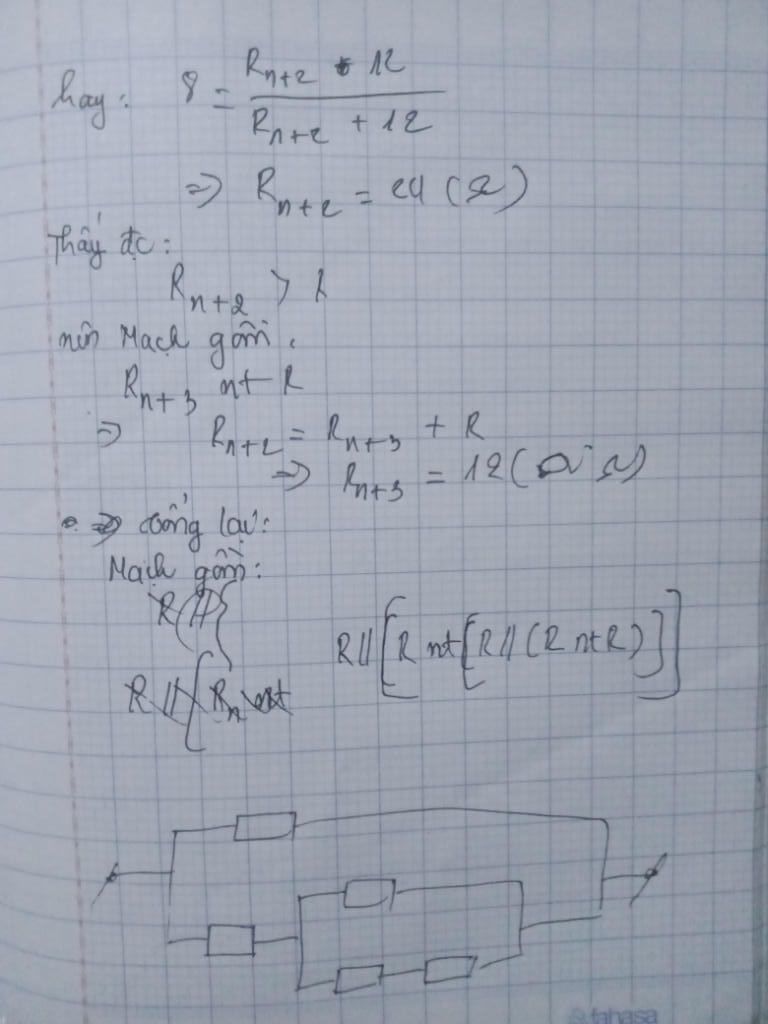 hay: 8 = \frac{R_{n+2} \cdot 12}{R_{n+2} + 12}
=> R_{n+2} = 24 (Ω)
Thấy đc:
R_{n+2} > R
nên Mạch gồm:
R_{n+3} nt R
=> R_{n+2} = R_{n+3} + R
=> R_{n+3} = 12 (Ω)
=> Tổng lại:
Mạch gồm:
R // [R nt [R // (R nt R)]]
fahasa